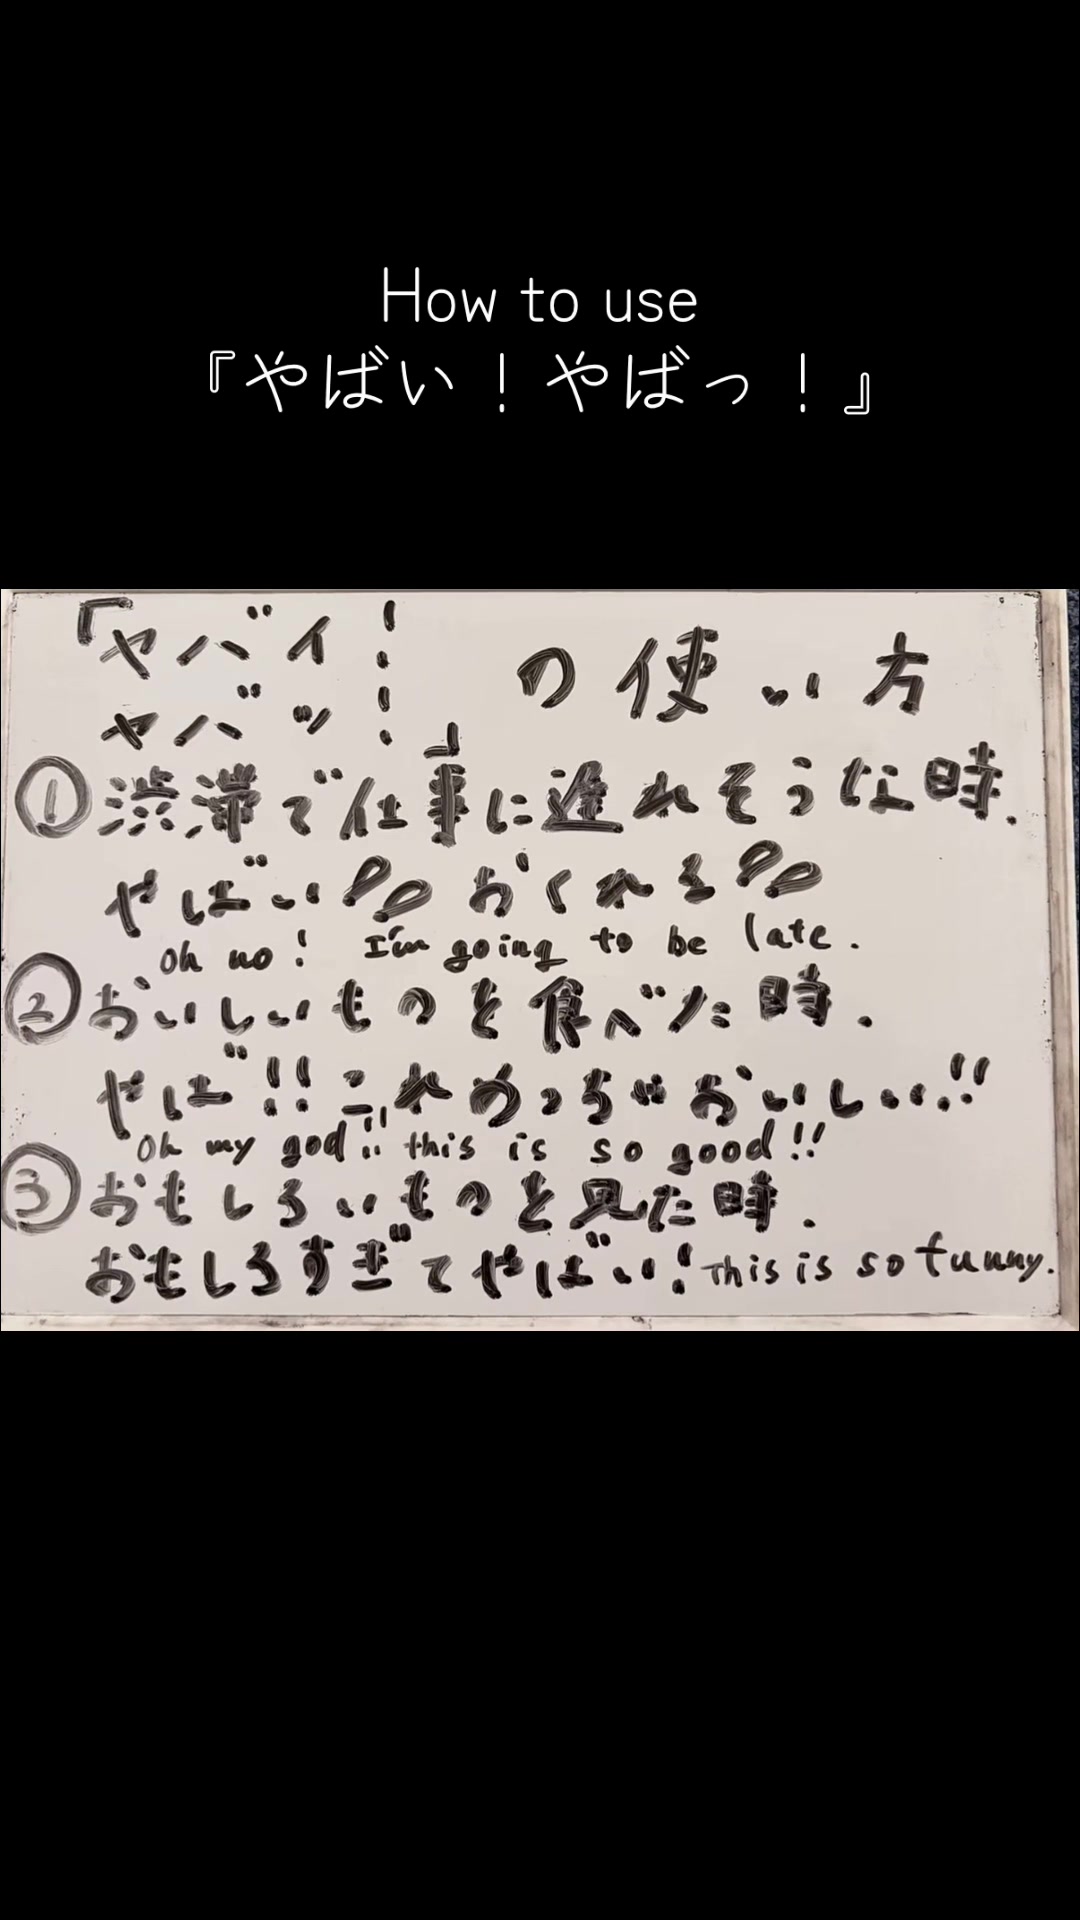 How to use
『やばい！やばっ！』
「ヤバイ!
ヤバッ!」
の使い方
① 渋滞で仕事に遅れそうな時.
やばい!! おくれる!!
Oh no! I'm going to be late.
② おいしいものを食べた時.
やば!! これめっちゃおいしい!!
Oh my god!! this is so good!!
③ おもしろいものを見た時.
おもしろすぎてやばい! This is so funny.